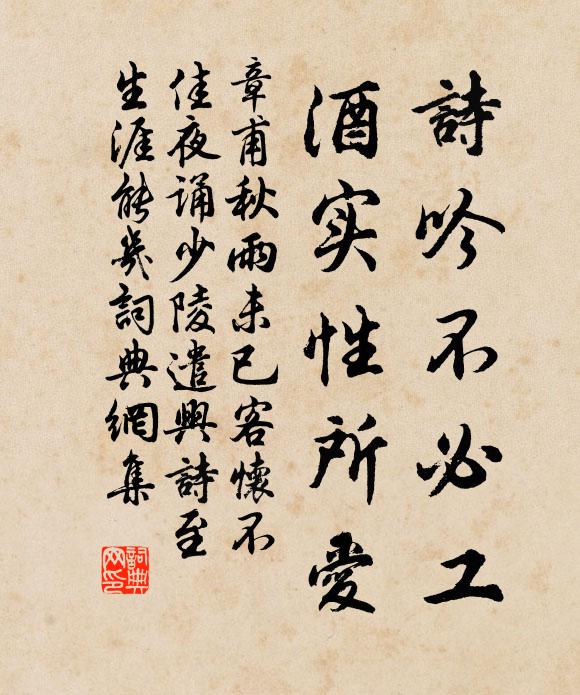 詩吟不必工
酒实性所愛
章甫秋雨未已客懷不
佳夜誦少陵遣興詩至
生涯能幾詞典網集
詞典
网印